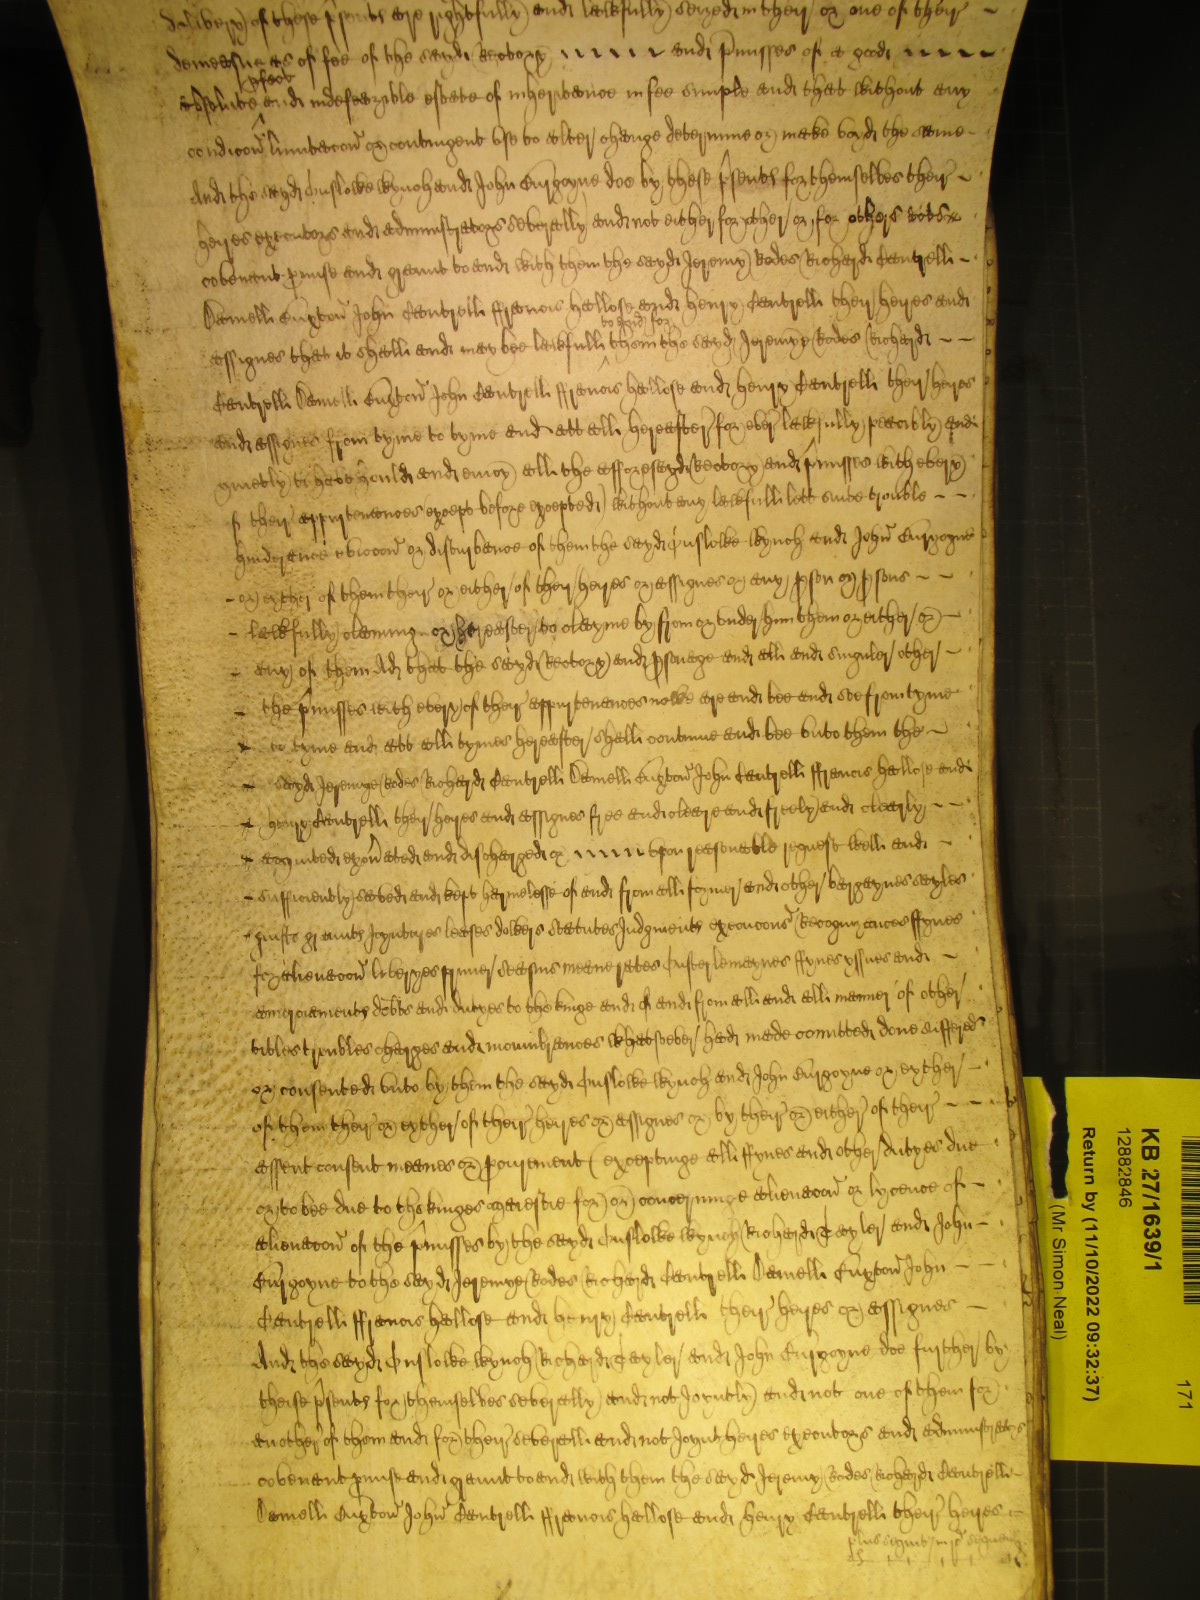 delivery of these p'sents are rightfully and lawfully seized in their or one of their
demeasne as of fee of the sayd Rectory and p'misses of a good
p'fect
absolute and indefeazible estate of inheritance in fee simple and that without any
condicon limitacon or contingent use to alter change determine or make voyd the same
And the sayd Onslowe Wynch and John Burgoyne doe by these p'sents for themselves their
heyres executors and administrators severally and not either for other or for others acts
covenant p'mise and graunt to and with them the sayd Jeremy Rodes Richard Cantrell
Daniell Buxton John Cantrell Francis Hallose and Henry Cantrell their heyres and
to and for
assignes that it shall and may bee lawfull them the sayd Jeremye Rodes Richard
Cantrell Daniell Buxton John Cantrell Francis Hallose and Henry Cantrell their heyres
and assignes from tyme to tyme and att all hereafter for ever lawfully peacibly and
quietly to have hould and enioy all the afforesayd Rectory and p'misses with every
of their appurtenances except before excepted) without any lawfull lett suite trouble
hinderance eviccon or disturbance of them the sayd Onslowe Wynch and John Burgoyne
or eyther of them their or either of their heyres or assignes or any p'son or p'sons
lawfully claiming or hereafter to clayme by from or under him them or either or
any of them And that the sayd Rectory and p'sonage and all and singuler other
the p'misses with every of their appurtenances nowe are and bee and soe from tyme
to tyme and att all tymes hereafter shall continue and bee unto them the
sayd Jeremye Rodes Richard Cantrell Daniell Buxton John Cantrell Francis Hallose and
Henry Cantrell their heyres and assignes free and cleare and freely and clearly
acquited exon'ated and discharged or upon reasonable request well and
sufficiently saved and kept harmelesse of and from all former and other bargaynes sayles
guifts graunts Joyntures leases dowers Statutes Judgments execucons Recognizances ffynes
for alienacon liveryes primer seasins meane rates ousterlemaynes ffynes yssues and
amerciaments debts and dutyes to the kinge and of and from all and all manner of other
titles troubles charges and incumbrances whatsoever had made comitted done suffered
or consented unto by them the sayd Onslowe Wynch and John Burgoyne or eyther
of them their or eyther of their heyres or assignes or by their or either of their
assent consent meanes or p'curement (exceptinge all ffynes and other dutyes due
or to bee due to the kinges maiestie for or concerninge alienacon or lycence of
alienacon of the p'misses by the sayd Onslowe Wynch Richard Tayler and John
Burgoyne to the sayd Jeremye Rodes Richard Cantrell Daniell Buxton John
Cantrell Francis Hallose and Henry Cantrell their heyres or assignes
And the sayd Onslowe Wynch Richard Tayler and John Burgoyne doe further by
theise p'sents for themselves severally and not Joyntly and not one of them for
another of them and for their severall and not Joynt heyres executors and administrators
covenant p'mise and graunt to and with them the sayd Jeremy Rodes Richard Cantrell
Daniell Buxton John Cantrell Francis Hallose and Henry Cantrell their heyres
KB 27/1639/1
12882846
171
Return by (11/10/2022 09:32:37)
(Mr Simon Neal)